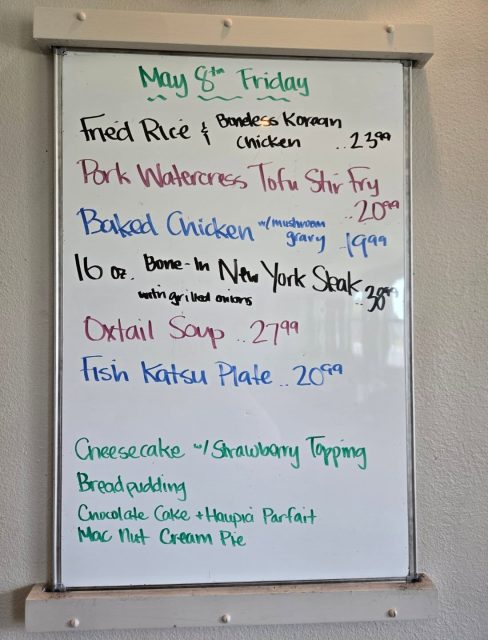 May 8th Friday
Fried Rice & Boneless Korean
Chicken ..23⁹⁹
Pork Watercress Tofu Stir Fry
..20⁹⁹
Baked Chicken w/mushroom
gravy -19⁹⁹
16 oz. Bone-In New York Steak..38⁹⁹
with grilled onions
Oxtail Soup ..27⁹⁹
Fish Katsu Plate ..20⁹⁹
Cheesecake w/ Strawberry Topping
Breadpudding
Chocolate Cake + Haupia Parfait
Mac Nut Cream Pie